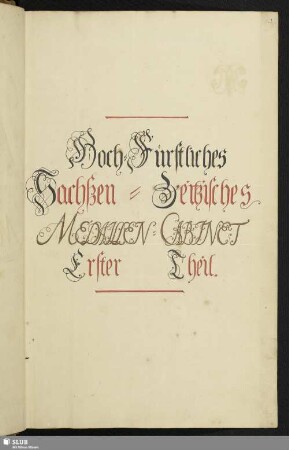 Hoch-Fürstliches
Sachßen = Zeitzisches
MEDAILLEN-CABINET
Erster Theil.
SLUB